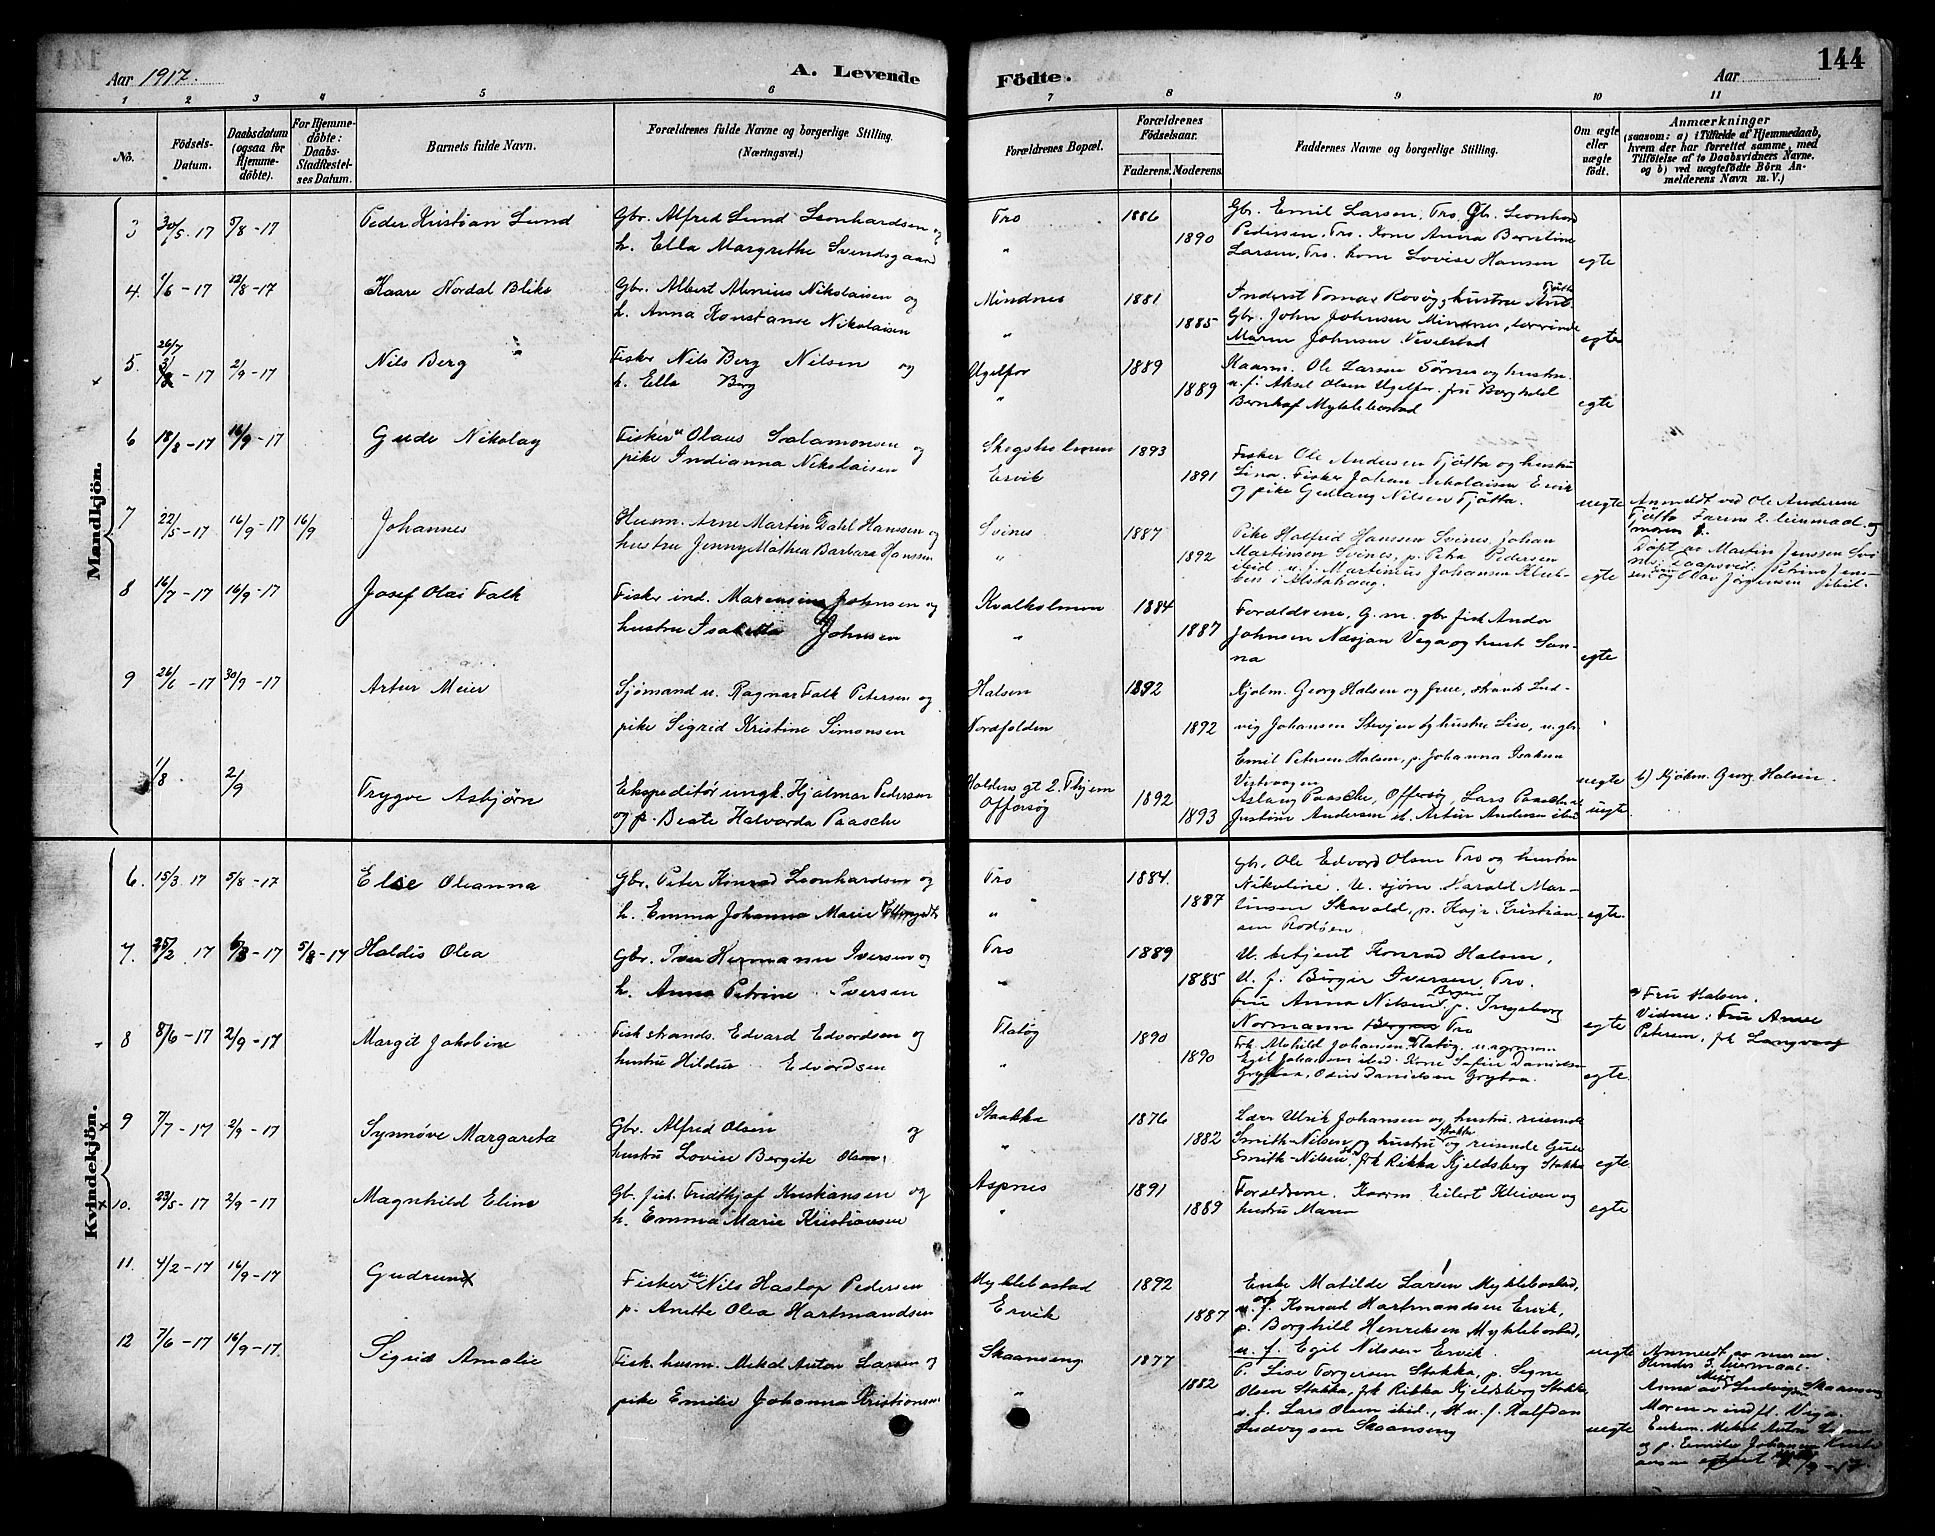 Aar 1917.
A. Levende
Födte.
Aar
144
1 2 3 4 5 6 7 8 9 10 11
No.
Födsels-Datum.
Daabsdatum (ogsaa for Hjemmedöbte).
For Hjemmedöbte: Daabs-Stadfestelses Datum.
Barnets fulde Navn.
Forældrenes fulde Navne og borgerlige Stilling.
(Næringsvei.)
Forældrenes Bopæl.
Forældrenes Födselsaar.
Faderens. Moderens.
Faddernes Navne og borgerlige Stilling.
Om ægte eller uægte födt.
Anmærkninger
(saasom: a) i Tilfælde af Hjemmedaab, hvem der har forrettet samme, med Tilföielse af to Daabsvidners Navne, og b) ved uægtefödte Börn Anmelderens Navn m. V.)
Mandkjön.
3 30/5-17 5/8-17 Peder Kristian Lund
Gbr. Alfred Lund Leonhardsen og
h. Ella Margrethe Svendsgaard
Tro 1886
" 1890
Gbr. Emil Larsen, Tro, Gb. Leonhard
Pedersen, Tro. Kone Anna Berntine
Larsen, Tro. kone Lovise Hansen egte
4. 1/6-17 12/8-17 Kaare Nordal Bliks
Gbr. Albert Alenius Nikolaisen og
h. Anna Konstanse Nikolaisen
Mindnes 1881
" 1885
Gbr. John Johnsen Mindnes,
Maren Johnsen Vevelstad egte
5 26/7 -17 2/9-17 Nils Berg
Fisker Nils Berg Nilsen og
h. Ella Berg
Ugelfor 1889
" 1889
Kaarm. Ole Larsen Sörnes og hustru
u. f. Aksel Olsen Ugelfor. fru Borghild
Bernhof Myklebostad egte
6 18/8-17 16/9-17 Gude Nikolay
Fisker u Olaus Salamonsen og
pike Indianna Nikolaisen
Skogsholmen 1893
Ervik 1891
Fisker Ole Andersen Tjötta og hustru
Lina. Fisker Johan Nikolaisen Ervik
og pike Gudlaug Nilsen Tjötta. uegte
Anmeldt ved Ole Andersen
Tjötta Farens 2. leiermaal og
morens 1.
7 22/5-17 16/9-17 16/9 Johannes
Husm. Arne Martin Dahl Hanssen og
hustru Jenny Mathea Barbara Hanssen
Svines 1887
" 1892
Pike Halfrid Hanssen Svines, Johan
Martinsen Svines, p. Petra Pedersen
ibid. u. f. Martinius Johansen
i Alstahaug. egte
Döpt av Martin Jenssen
Daapsvid: Petrine Jenssen
og Olav Jörgensen ibid.
8 16/7-17 16/9-17 Josef Olai Falk
Fisker ind. Marensius Johnsen og
hustru Isabella Johnsen
Kvalholmen 1884
" 1887
Forældrene, G.m. gbr fisk Andor
Johnsen Næsjan Vega og hustr San-
na egte
9 26/6-17 30/9-17 Artur Meier
Sjömand u. Ragnar Falk Petersen og
pike Sigrid Kristine Simonsen
Halsen 1892
Nordfolden 1892
Kjöbm. Georg Halsen og frue, strands. Lud-
vig Johansen Stevjen og hustru Lise, u. gbr.
Emil Petersen Halsen, p. Johanna Isaksen
Vistvogen uegte
b) Kjöbm. Georg Halsen.
1/8 2/9 Trygve Asbjörn
Ekspeditör ungk. Hjalmar Pedersen
og p. Beate Halvorda Paasche
Holdens gt 2. Thjem 1892
Offersög 1893
Aslaug Paasche, Offersög, Lars Paasche
Justine Andersen ib. Artur Andersen ibid uegte
Kvindekjön.
6. 15/3 17 5/8-17 Else Oleanna
Gbr. Peter Konrad Leonhardsen og
h. Emma Johanna Marie
Tro 1884.
" 1887
Gb. Ole Edvard Olsen Tro og hustru
Nikoline. U. sjöm Harald Mar-
tinsen Skavald, p. Kaja Kristian-
sen Rodöen. egte
7. 25/2 17 6/8-17 5/8-17 Haldis Olea
Gbr. Iver Hermann Iversen og
h. Anna Petrine Iversen
Tro 1889
" 1885
U. betjent Konrad Halsen,
U. f. Birger Iversen, Tro.
Fru Anna Nilsen Bergen p. Ingeborg
Normann Tro egte
a) Fru Halsen.
Vidner: Fru Anne
Petersen, frk Langvaag
8 8/6-17 2/9-17 Margit Jakobine
Fisk. strands. Edvard Edvardsen og
hustru Hildur Edvardsen
Flatög 1890
" 1890
Frk. Mehild Johansen Flatög. u.
Egil Johansen ibid. Kone Sofie Danielsen
Grytaa, Odin Danielsen Grytaa. egte.
9 7/7-17 2/9-17 Synnöve Margareta
Gbr. Alfred Olsen og
hustru Lovise Bergite Olsen
Staakka 1876
" 1882
Lærer Ulrik Johansen og hustru. reisende
Smith-Nilsen og hustru Stokka og reisende Gude
Smith-Nilsen frk Rikka Kjeldsberg Stokka egte.
10. 23/5-17 2/9-17 Magnhild Eline
Gb. fisk. Fridthjof Kristiansen og
h. Emma Marie Kristiansen
Aspnes 1891
" 1889
Forældrene. Kaarm Eilert Kleiven og
hustru Maren egte
11. 4/2-17 16/9-17 Gudrun
Fisker u Nils Hastop Pedersen
p. Anette Olea Hartmandsen
Myklebostad 1892
Ervik 1887
Enke Matilde Larsen Myklebostad,
u. f. Konrad Hartmandsen Ervik,
p. Borghild Henriksen Myklebostad,
u. f. Egil Nilssen Ervik. uegte
Anmeldt av moren.
Hendes 3. leiermaal.
12 7/6-17 16/9-17. Sigrid Amalie
Fisk. husm. Mekal Anton Larsen og
pike Emilie Johanna Kristiansen
Skaanseng 1877
" 1882
P. Lise Torgersen Stokka, p. Signe
Olsen Stokka, frk Rikka Kjeldsberg Stokka
u. f. Lars Olsen ibid., u. f. Halfdan
Ludvigsen Skaanseng uegte
Anm av Ludvigsen Skaanseng
Moren er indfl. Vega.
Enkem. Mekal Anton Larsen
og p. Emilie Johansen